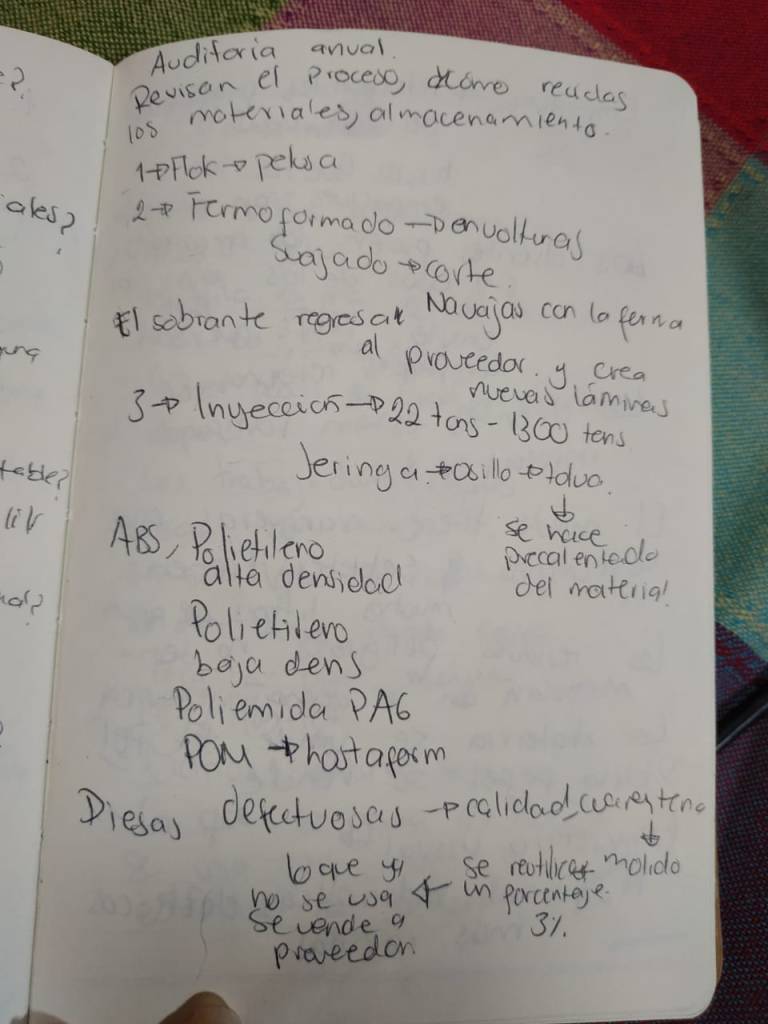 ?
Auditoria anual.
Revisan el proceso, cómo recidas
los materiales, almacenamiento.
1→ Flok → pelusa
ales?
2→ Termoformado → envolturas
Suajado → corte.
El sobrante regresa Navajas con la forma
al proveedor. y crea
nuevas láminas
3→ Inyección → 22 tons - 1300 tons
Jeringa → osillo → tolva.
↓
se hace
precalentado
del material
table?
ABS, Polietileno
alta densidad
Polietileno
baja dens
Poliemida PA6
POM → hostaform
Piesas defectuosas → calidad, cuarentena
↓
molido
se reutiliza
un porcentaje.
3%.
← lo que ya
no se usa
se vende a
proveedor